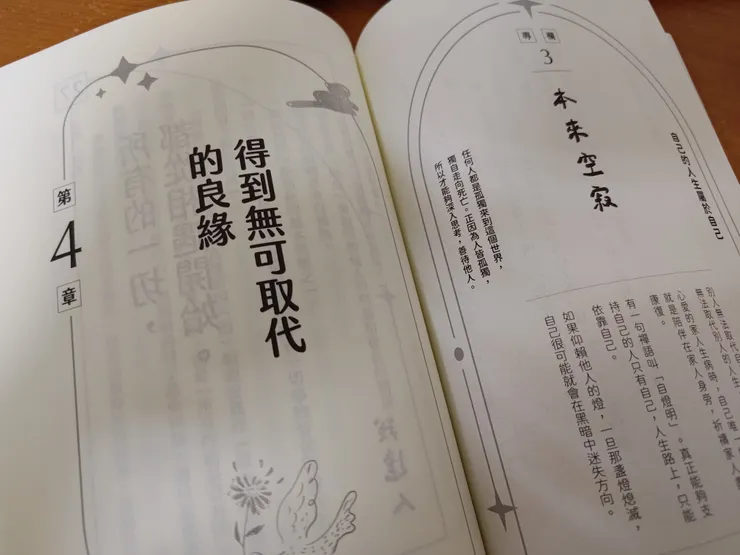 專欄
3
自己的人生屬於自己
本來空寂
任何人都是孤獨來到這個世界，
獨自走向死亡。正因為人皆孤獨，
所以才能夠深入思考，善待他人。
別人無法取代自
無法取代別人的人生
心愛的家人生病時，自己唯一
就是陪伴在家人身旁，祈禱家人
康復。
有一句禪語叫「自燈明」。真正能夠支
持自己的人只有自己，人生路上，只能
依靠自己。
如果仰賴他人的燈，一旦那盞燈熄滅，
自己很可能就會在黑暗中迷失方向。
第
4
章
得到無可取代
的良緣